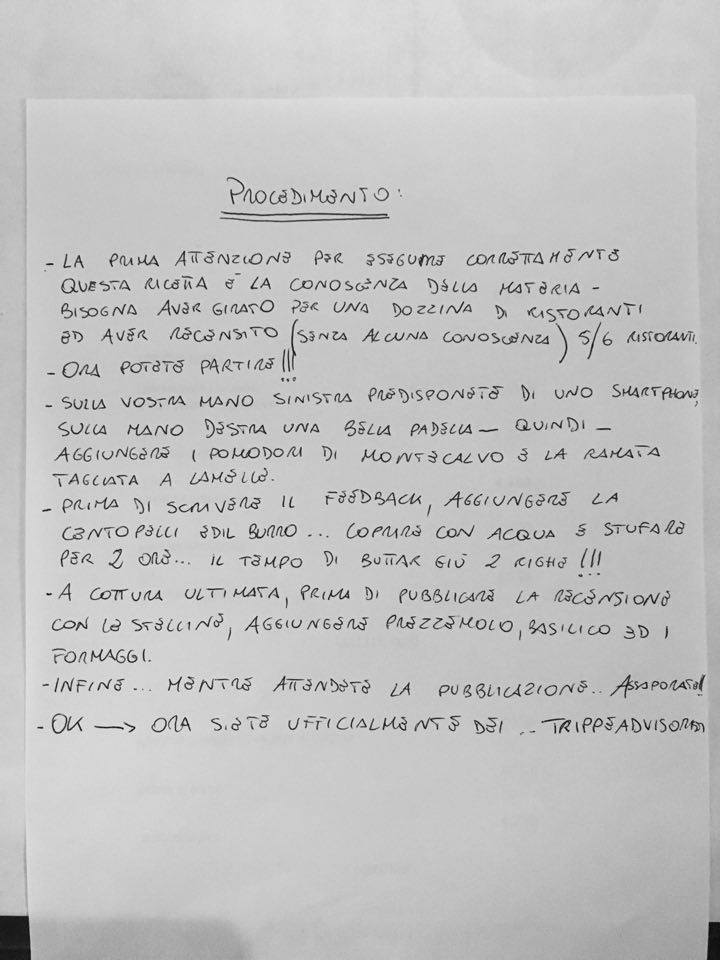 PROCEDIMENTO:
- LA PRIMA ATTENZIONE PER ESEGUIRE CORRETTAMENTE
QUESTA RICETTA È LA CONOSCENZA DELLA MATERIA -
BISOGNA AVER GIRATO PER UNA DOZZINA DI RISTORANTI
ED AVER RECENSITO (SENZA ALCUNA CONOSCENZA) 5/6 RISTORANTI.
- ORA POTETE PARTIRE!!!...
- SULLA VOSTRA MANO SINISTRA PREDISPONETE DI UNO SMARTPHONE,
SULLA MANO DESTRA UNA BELLA PADELLA - QUINDI -
AGGIUNGERE I POMODORI DI MONTECALVO E LA RAMATA
TAGLIATA A LAMELLE.
- PRIMA DI SCRIVERE IL FEEDBACK, AGGIUNGERE LA
CENTOPELLI ED IL BURRO... COPRIRE CON ACQUA E STUFARE
PER 2 ORE... IL TEMPO DI BUTTAR GIÙ 2 RIGHE!!!
- A COTTURA ULTIMATA, PRIMA DI PUBBLICARE LA RECENSIONE
CON LE STELLINE, AGGIUNGERE PREZZEMOLO, BASILICO ED I
FORMAGGI.
- INFINE... MENTRE ATTENDETE LA PUBBLICAZIONE.. ASSAPORATE!!
- OK → ORA SIETE UFFICIALMENTE DEI ... TRIPPEADVISORATI